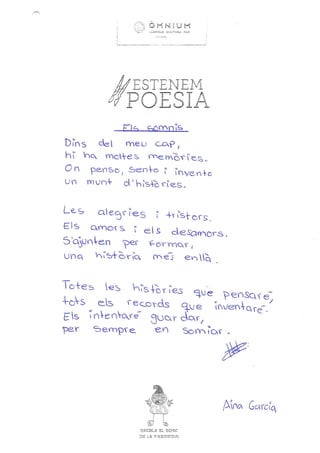 ÒMNIUM
LLENGUA CULTURA PAÍS
ESTENEM
POESIA
Els somnis
Dins del meu cap,
hi ha moltes memòries.
On penso, sento i invento
un munt d'històries.
Les alegries i tristors.
Els amors i els desamors.
S'ajunten per formar,
una història més enllà.
Totes les històries que pensaré,
tots els records que inventaré.
Els intentaré guardar,
per sempre en somiar.
Aina García